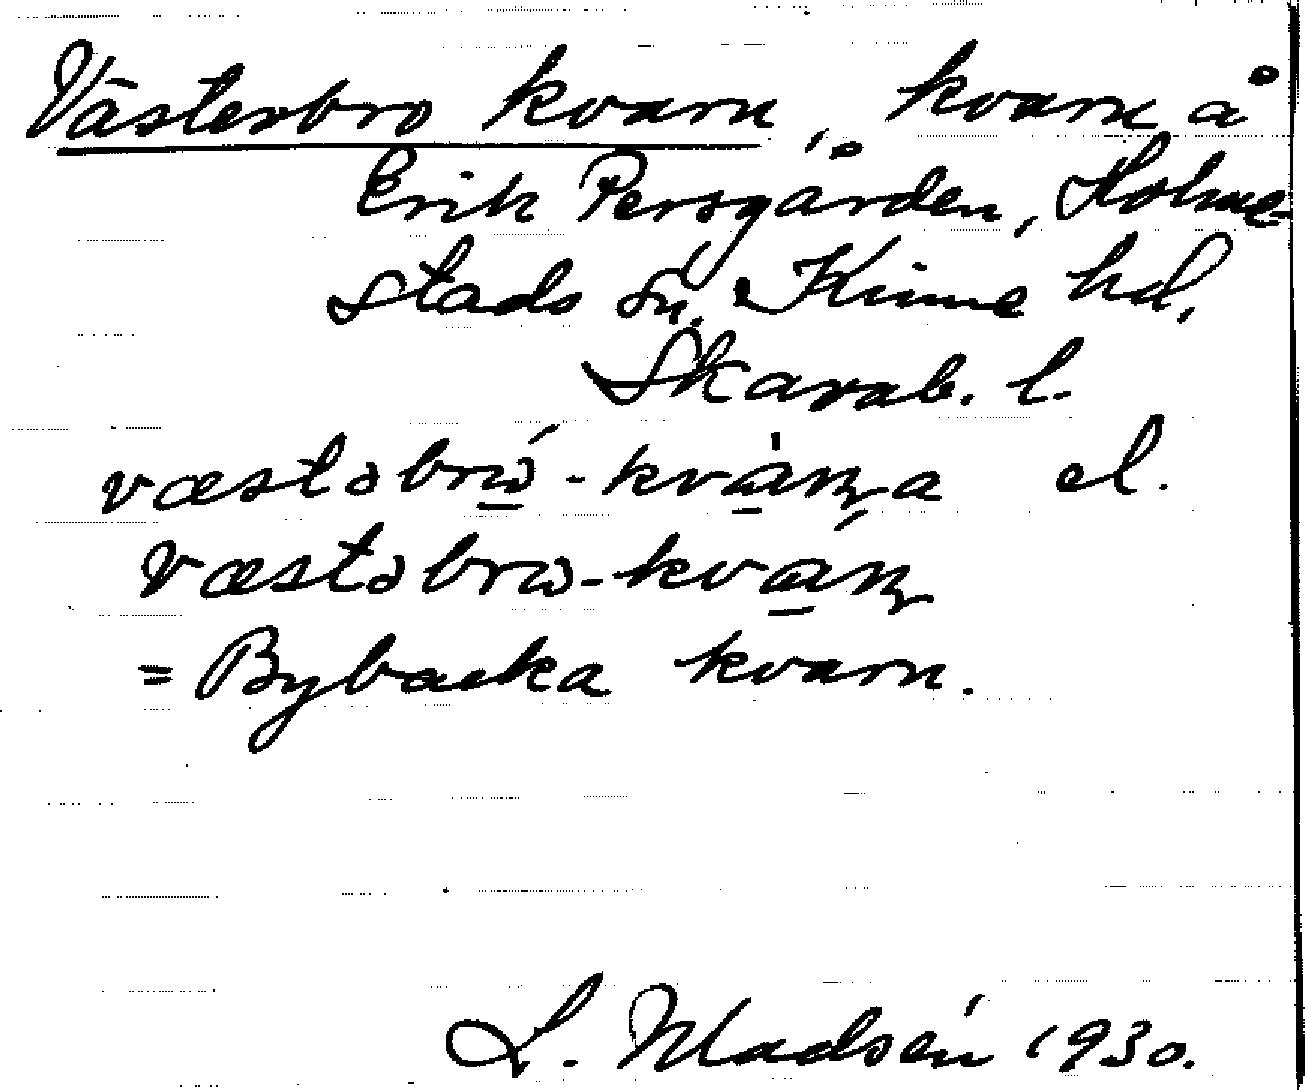 Västerbro kvarn, kvarn å
Erik Persgården, Holme-
stads sn. Kinne hd.
Skarab. l.
væstəbrɷ́-kvàɳa el.
væstəbrɷ-kváɳ
= Bybacka kvarn.
L. Madsén 1930.